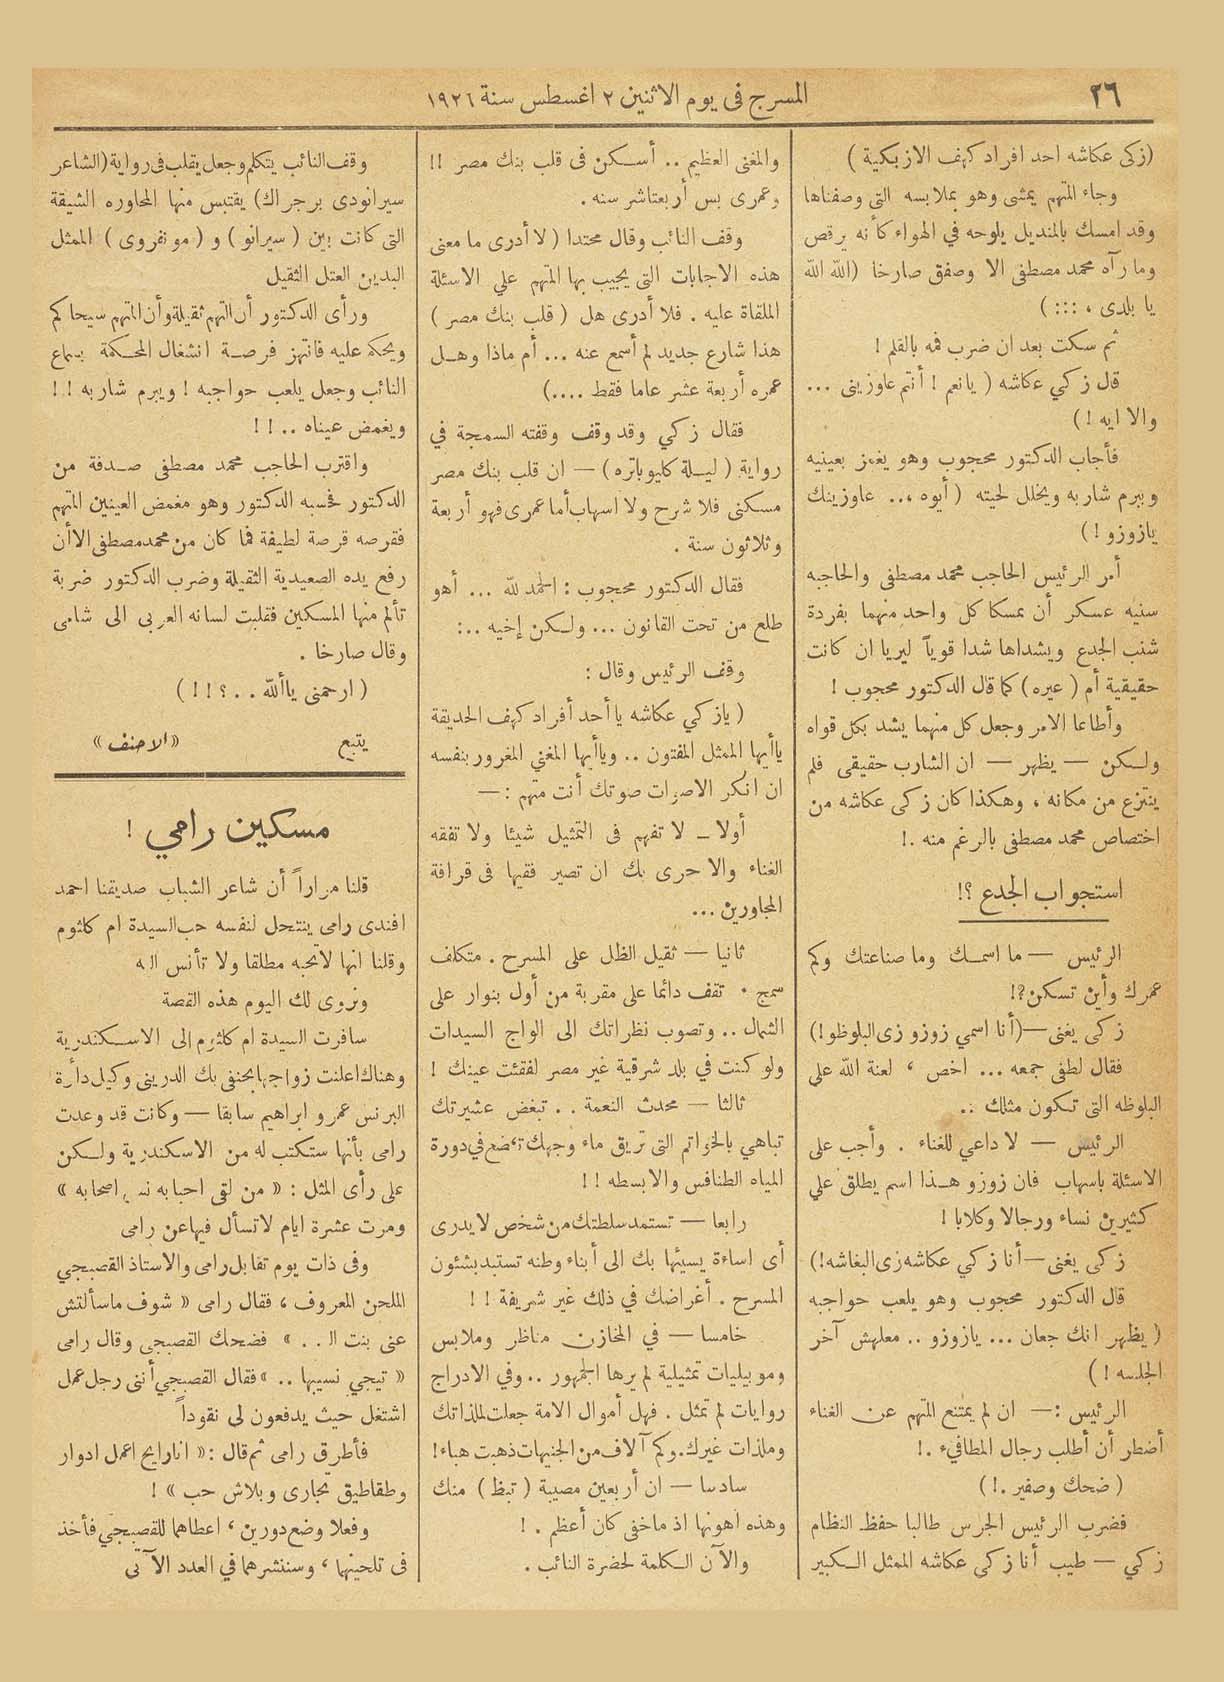 ٢٦
المسرح فى يوم الاثنين ٢ اغسطس سنة ١٩٢٦
(زكى عكاشه احد افراد كهف الازبكية)
وجاء المتهم يمشى وهو بملابسه التى وصفناها
وقد امسك بالمنديل يلوحه في الهواء كأنه يرقص
وما رآه محمد مصطفى الا وصفق صارخا (الله الله
يا بلدى ، ::: )
ثم سكت بعد ان ضرب فمه بالقلم !
قال زكي عكاشه ( يانعم ! أنتم عاوزينى ...
والا ايه !)
فأجاب الدكتور محجوب وهو يغمز بعينيه
ويبرم شاربه ويخلل لحيته ( أيوه ،.. عاوزينك
يازوزو !)
أمر الرئيس الحاجب محمد مصطفى والحاجبه
سنيه عسكر أن يمسكا كل واحد منهما بفردة
شنب الجدع ويشداها شدا قوياً ليريا ان كانت
حقيقية أم ( عيره ) كما قال الدكتور محجوب !
وأطاعا الامر وجعل كل منهما يشد بكل قواه
ولكن — يظهر — ان الشارب حقيقى فلم
ينتزع من مكانه ، وهكذا كان زكى عكاشه من
اختصاص محمد مصطفى بالرغم منه .!
استجواب الجدع ؟!
الرئيس — ما اسمك وما صناعتك وكم
عمرك وأين تسكن؟!
زكى يغنى—(أنا اسمي زوزو زى البلوظو!)
فقال لطفى جمعه ... اخص ، لعنة الله على
البلوظه التى تكون مثلك ..
الرئيس — لا داعي للغناء . وأجب على
الاسئلة باسهاب فان زوزو هذا اسم يطلق علي
كثيرين نساء ورجالا وكلابا !
زكى يغنى—أنا زكي عكاشه زى البغاشه!)
قال الدكتور محجوب وهو يلعب حواجبه
( يظهر انك جعان ... يازوزو .. معلهش آخر
الجلسه !)
الرئيس :— ان لم يمتنع المتهم عن الغناء
أضطر أن أطلب رجال المطافيء .!
( ضحك وصفير .!)
فضرب الرئيس الجرس طالبا حفظ النظام
زكي — طيب أنا زكى عكاشه الممثل الكبير
والمغنى العظيم .. أسكن فى قلب بنك مصر !!
وعمرى بس أربعتاشر سنه .
وقف النائب وقال محتدا ( لا أدرى ما معنى
هذه الاجابات التى يجيب بها المتهم علي الاسئلة
الملقاة عليه . فلا أدرى هل ( قلب بنك مصر )
هذا شارع جديد لم أسمع عنه ... أم ماذا وهل
عمره أربعة عشر عاما فقط ....)
فقال زكي وقد وقف وقفته السمجة في
رواية ( ليلة كليوباتره ) — ان قلب بنك مصر
مسكنى فلا شرح ولا اسهاب أما عمرى فهو أربعة
وثلاثون سنة .
فقال الدكتور محجوب : الحمد لله ... أهو
طلع من تحت القانون ... ولكن إخيه ..:
وقف الرئيس وقال :
( يازكي عكاشه يا أحد أفراد كهف الحديقة
ياأيها الممثل المفتون .. وياأيها المغني المغرور بنفسه
ان انكر الاصوات صوتك أنت متهم :—
أولا — لا تفهم فى التمثيل شيئا ولا تفقه
الغناء والاحرى بك ان تصير فقيها فى قرافة
المجاورين ...
ثانيا — ثقيل الظل على المسرح . متكلف
سمج . تقف دائما على مقربة من أول بنوار على
الشمال .. وتصوب نظراتك الى الواج السيدات
ولو كنت في بلد شرقية غير مصر لفقئت عينك !
ثالثا — محدث النعمة .. تبغض عشيرتك
تباهي بالخواتم التى تريق ماء وجهك تضع في دورة
المياه الطنافس والابسطه !!
رابعا — تستمد سلطتك من شخص لا يدرى
أى اساءة يسيئها بك الى أبناء وطنه تستبد بشئون
المسرح . أغراضك في ذلك غير شريفة !!
خامسا — في المخازن مناظر وملابس
وموبيليات تمثيلية لم يرها الجمهور .. وفي الادراج
روايات لم تمثل . فهل أموال الامة جعلت لملذاتك
وملذات غيرك. وكم آلاف من الجنيهات ذهبت هباء!
سادسا — ان أربعين مصيبة ( تبظ ) منك
وهذه أهونها اذ ماخفى كان أعظم .!
والآن الكلمة لحضرة النائب .
وقف النائب يتكلم وجعل يقلب فى رواية (الشاعر
سيرانودى برجراك) يقتبس منها المحاوره الشيقة
التى كانت بين ( سيرانو ) و ( مونفروى ) الممثل
البدين العتل الثقيل
ورأى الدكتور أن التهم ثقيلة وأن المتهم سيحاكم
ويحكم عليه فانتهز فرصة انشغال المحكمة بسماع
النائب وجعل يلعب حواجبه ! ويبرم شاربه !!
ويغمض عيناه ..!!
واقترب الحاجب محمد مصطفى صدفة من
الدكتور فحسبه الدكتور وهو مغمض العينين المتهم
فقرصه قرصة لطيفة فما كان من محمد مصطفى الا أن
رفع يده الصعيدية الثقيلة وضرب الدكتور ضربة
تألم منها المسكين فقلبت لسانه العربى الى شامى
وقال صارخا .
( ارحمنى ياألله ..؟!!)
يتبع «الاحنف»
مسكين رامي !
قلنا مراراً أن شاعر الشباب صديقنا احمد
افندى رامى ينتحل لنفسه حب السيدة ام كلثوم
وقلنا انها لا تحبه مطلقا ولا تأنس اليه
ونروى لك اليوم هذه القصة
سافرت السيدة ام كلثوم إلى الاسكندرية
وهناك اعلنت زواجها بحنفى بك الدرينى وكيل دائرة
البرنس عمرو ابراهيم سابقا — وكانت قد وعدت
رامى بأنها ستكتب له من الاسكندرية ولكن
على رأى المثل : « من لقى احبابه نسى اصحابه »
ومرت عشرة ايام لا تسأل فيها عن رامى
وفى ذات يوم تقابل رامى والاستاذ القصبجي
الملحن المعروف ، فقال رامى « شوف ماسألتش
عنى بنت الـ .. » فضحك القصبجى وقال رامى
« تيجي نسيبها .. » فقال القصبجي أننى رجل عمل
اشتغل حيث يدفعون لى نقوداً
فأطرق رامى ثم قال : « انا رايح اعمل ادوار
وطقاطيق تجارى وبلاش حب » !
وفعلا وضع دورين ، اعطاهما للقصبجي فأخذ
فى تلحينهما ، وسننشرهما في العدد الآتى